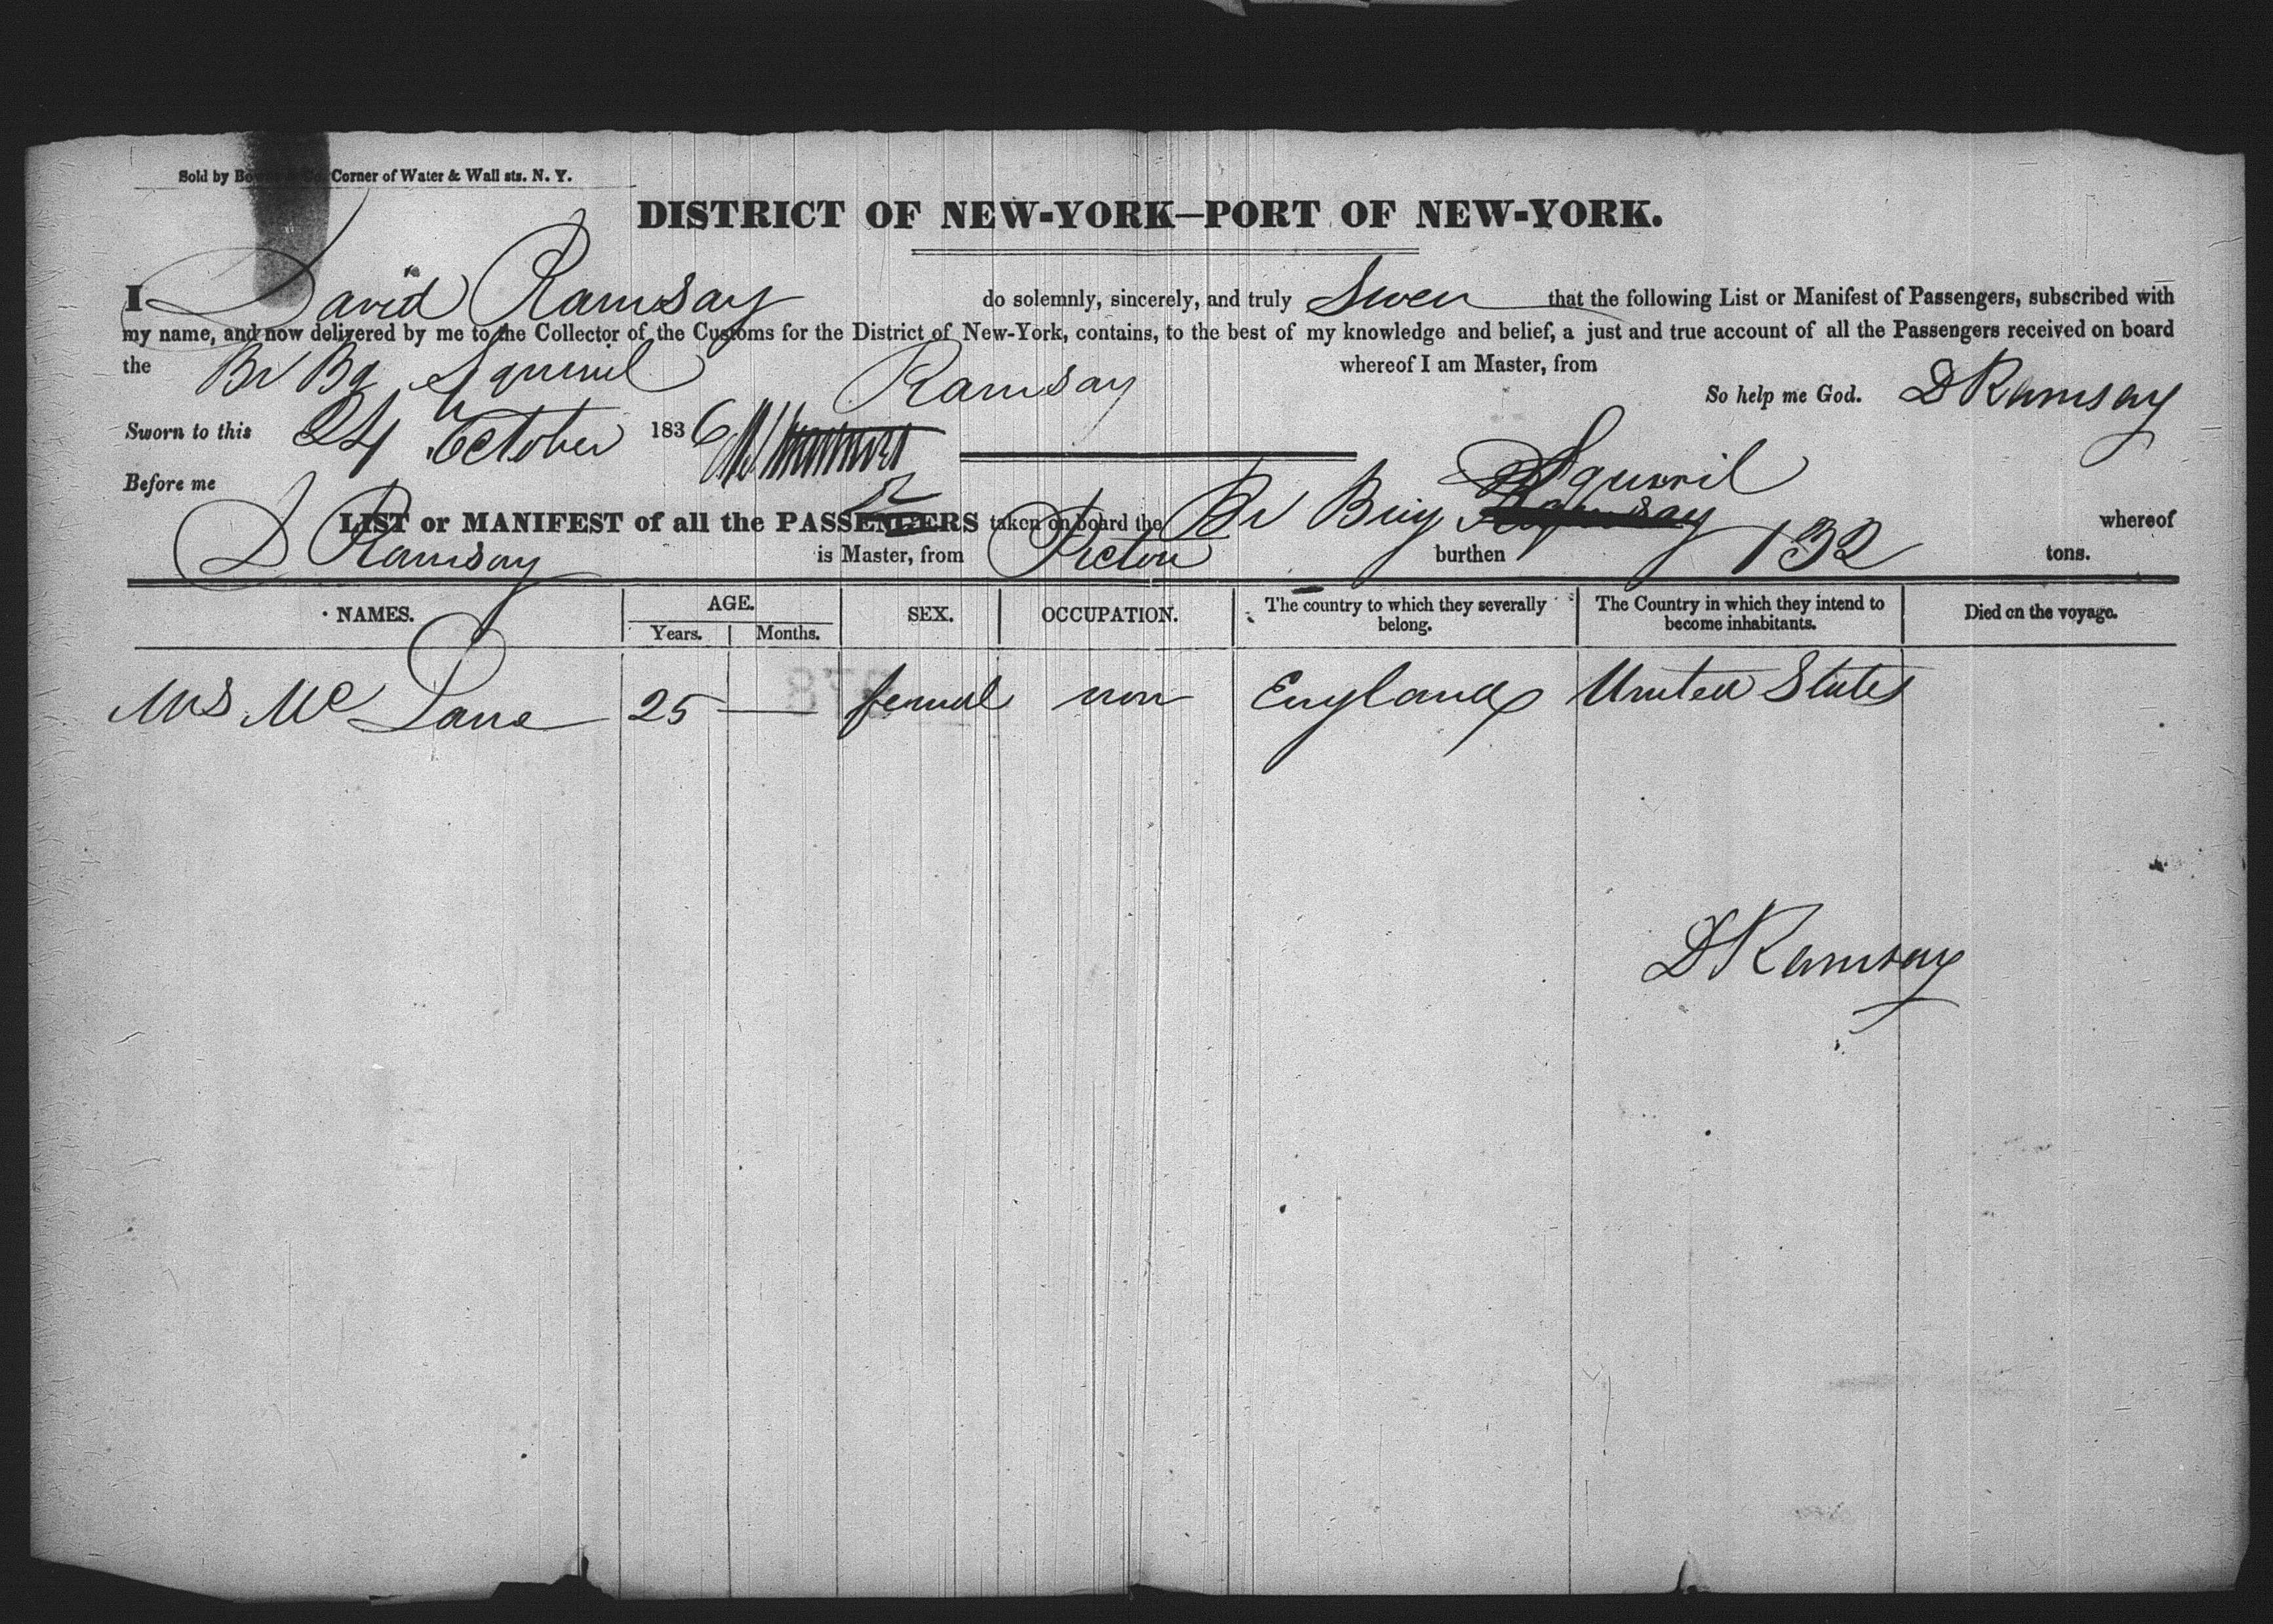 Sold by Bowne & Co. Corner of Water & Wall sts. N. Y.
DISTRICT OF NEW-YORK—PORT OF NEW-YORK.
I David Ramsay do solemnly, sincerely, and truly Swen that the following List or Manifest of Passengers, subscribed with
my name, and now delivered by me to the Collector of the Customs for the District of New-York, contains, to the best of my knowledge and belief, a just and true account of all the Passengers received on board
the Br Bg Squirril Ramsay whereof I am Master, from
So help me God. D Ramsay
Sworn to this 24th October 1836
Before me
LIST or MANIFEST of all the PASSENGERS taken on board the Br Brig Squirril whereof
D Ramsay is Master, from Pictou burthen 132 tons.
NAMES. AGE. SEX. OCCUPATION. The country to which they severally belong. The Country in which they intend to become inhabitants. Died on the voyage.
Years. Months.
Mrs Mc Lane 25 — femal non England United States
D Ramsay